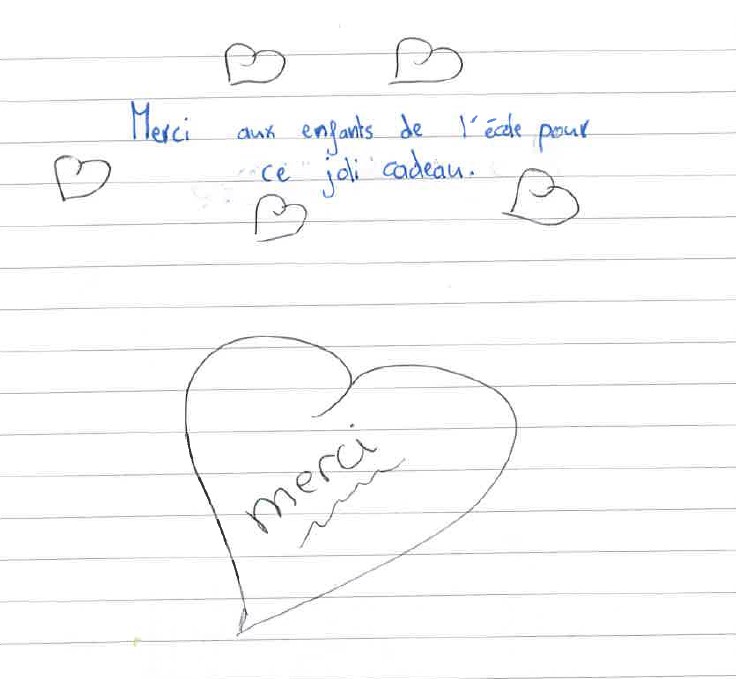 Merci aux enfants de l'école pour
ce joli cadeau.
merci